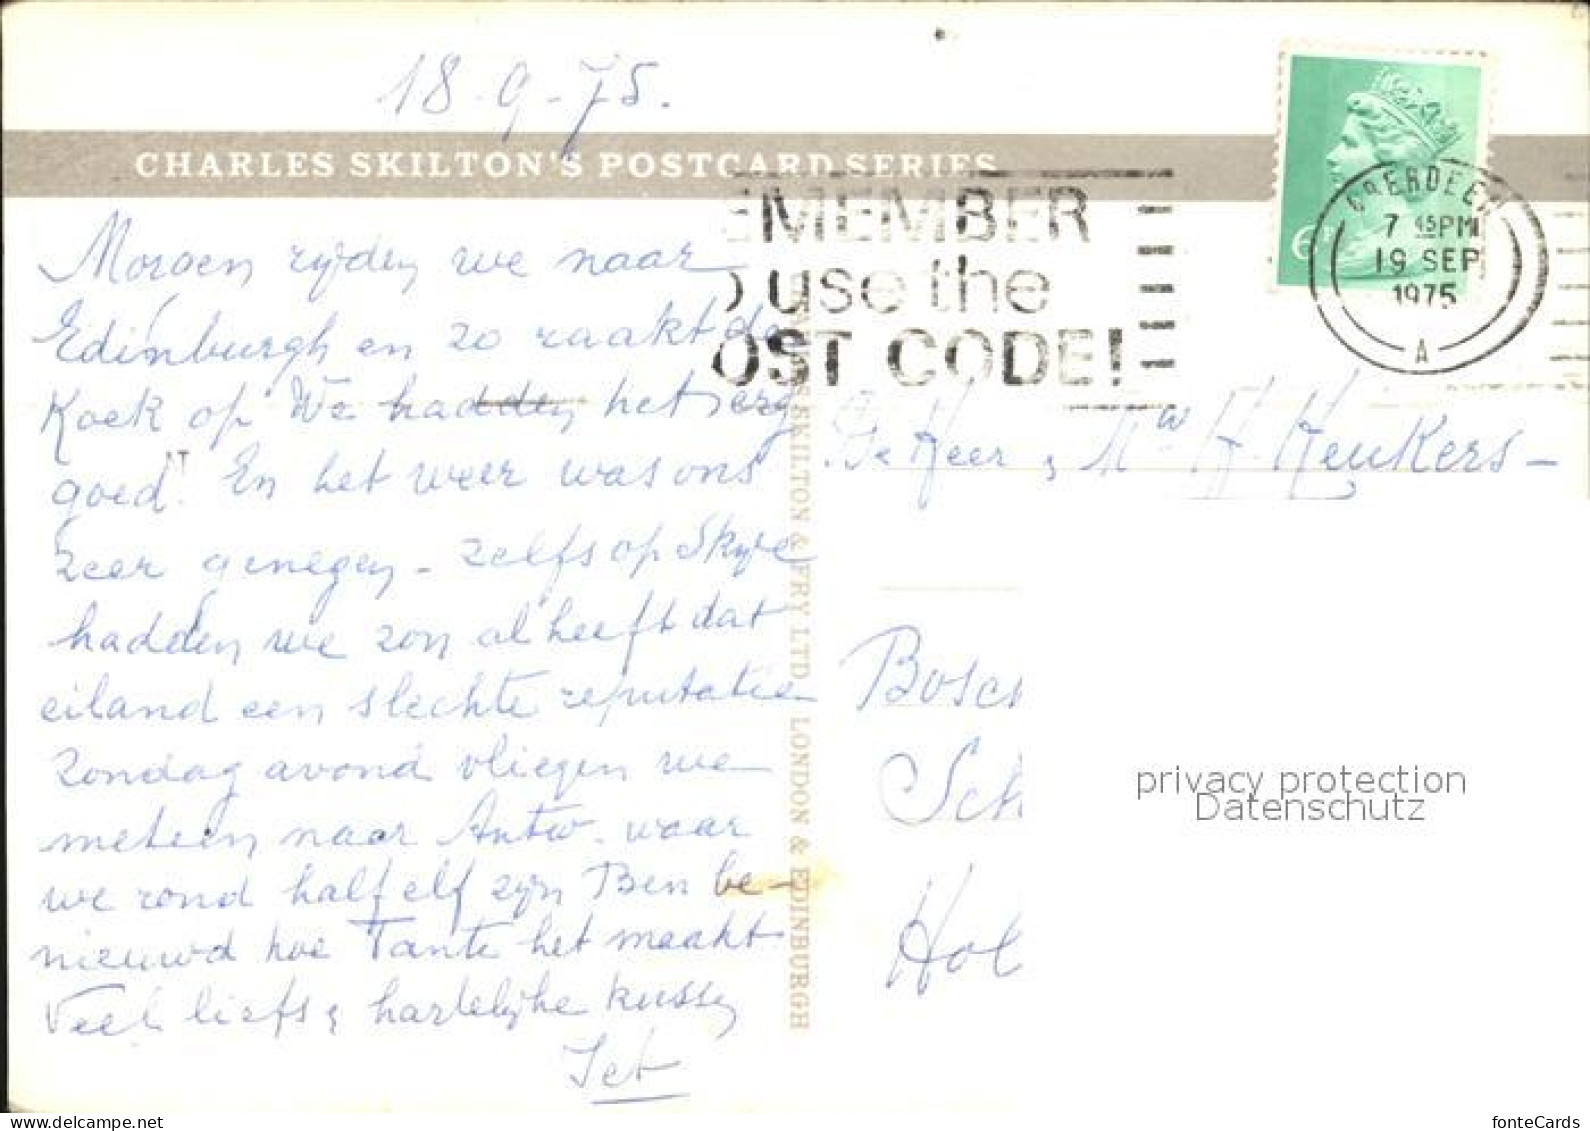 18-9-75.
CHARLES SKILTON'S POSTCARD SERIES
EMEMBER
o use the
OST CODE!
ABERDEEN
7 45PM
19 SEP
1975
A
Morgen rijden we naar
Edinburgh en zo raakt de
Koek op We hadden het erg
goed! En het weer was ons
zeer genegen - zelfs op Skye
hadden we zon al heeft dat
eiland een slechte reputatie
Zondag avond vliegen we
meteen naar Antw. waar
we rond half elf zijn Ben be-
nieuwd hoe Tante het maakt
Veel liefs & hartelijke kussen
Jet
SKILTON & FRY LTD LONDON & EDINBURGH
De Heer & Mw H. Keukers-
Bosch
Sch
Hol
privacy protection
Datenschutz
www.delcampe.net
fonteCards